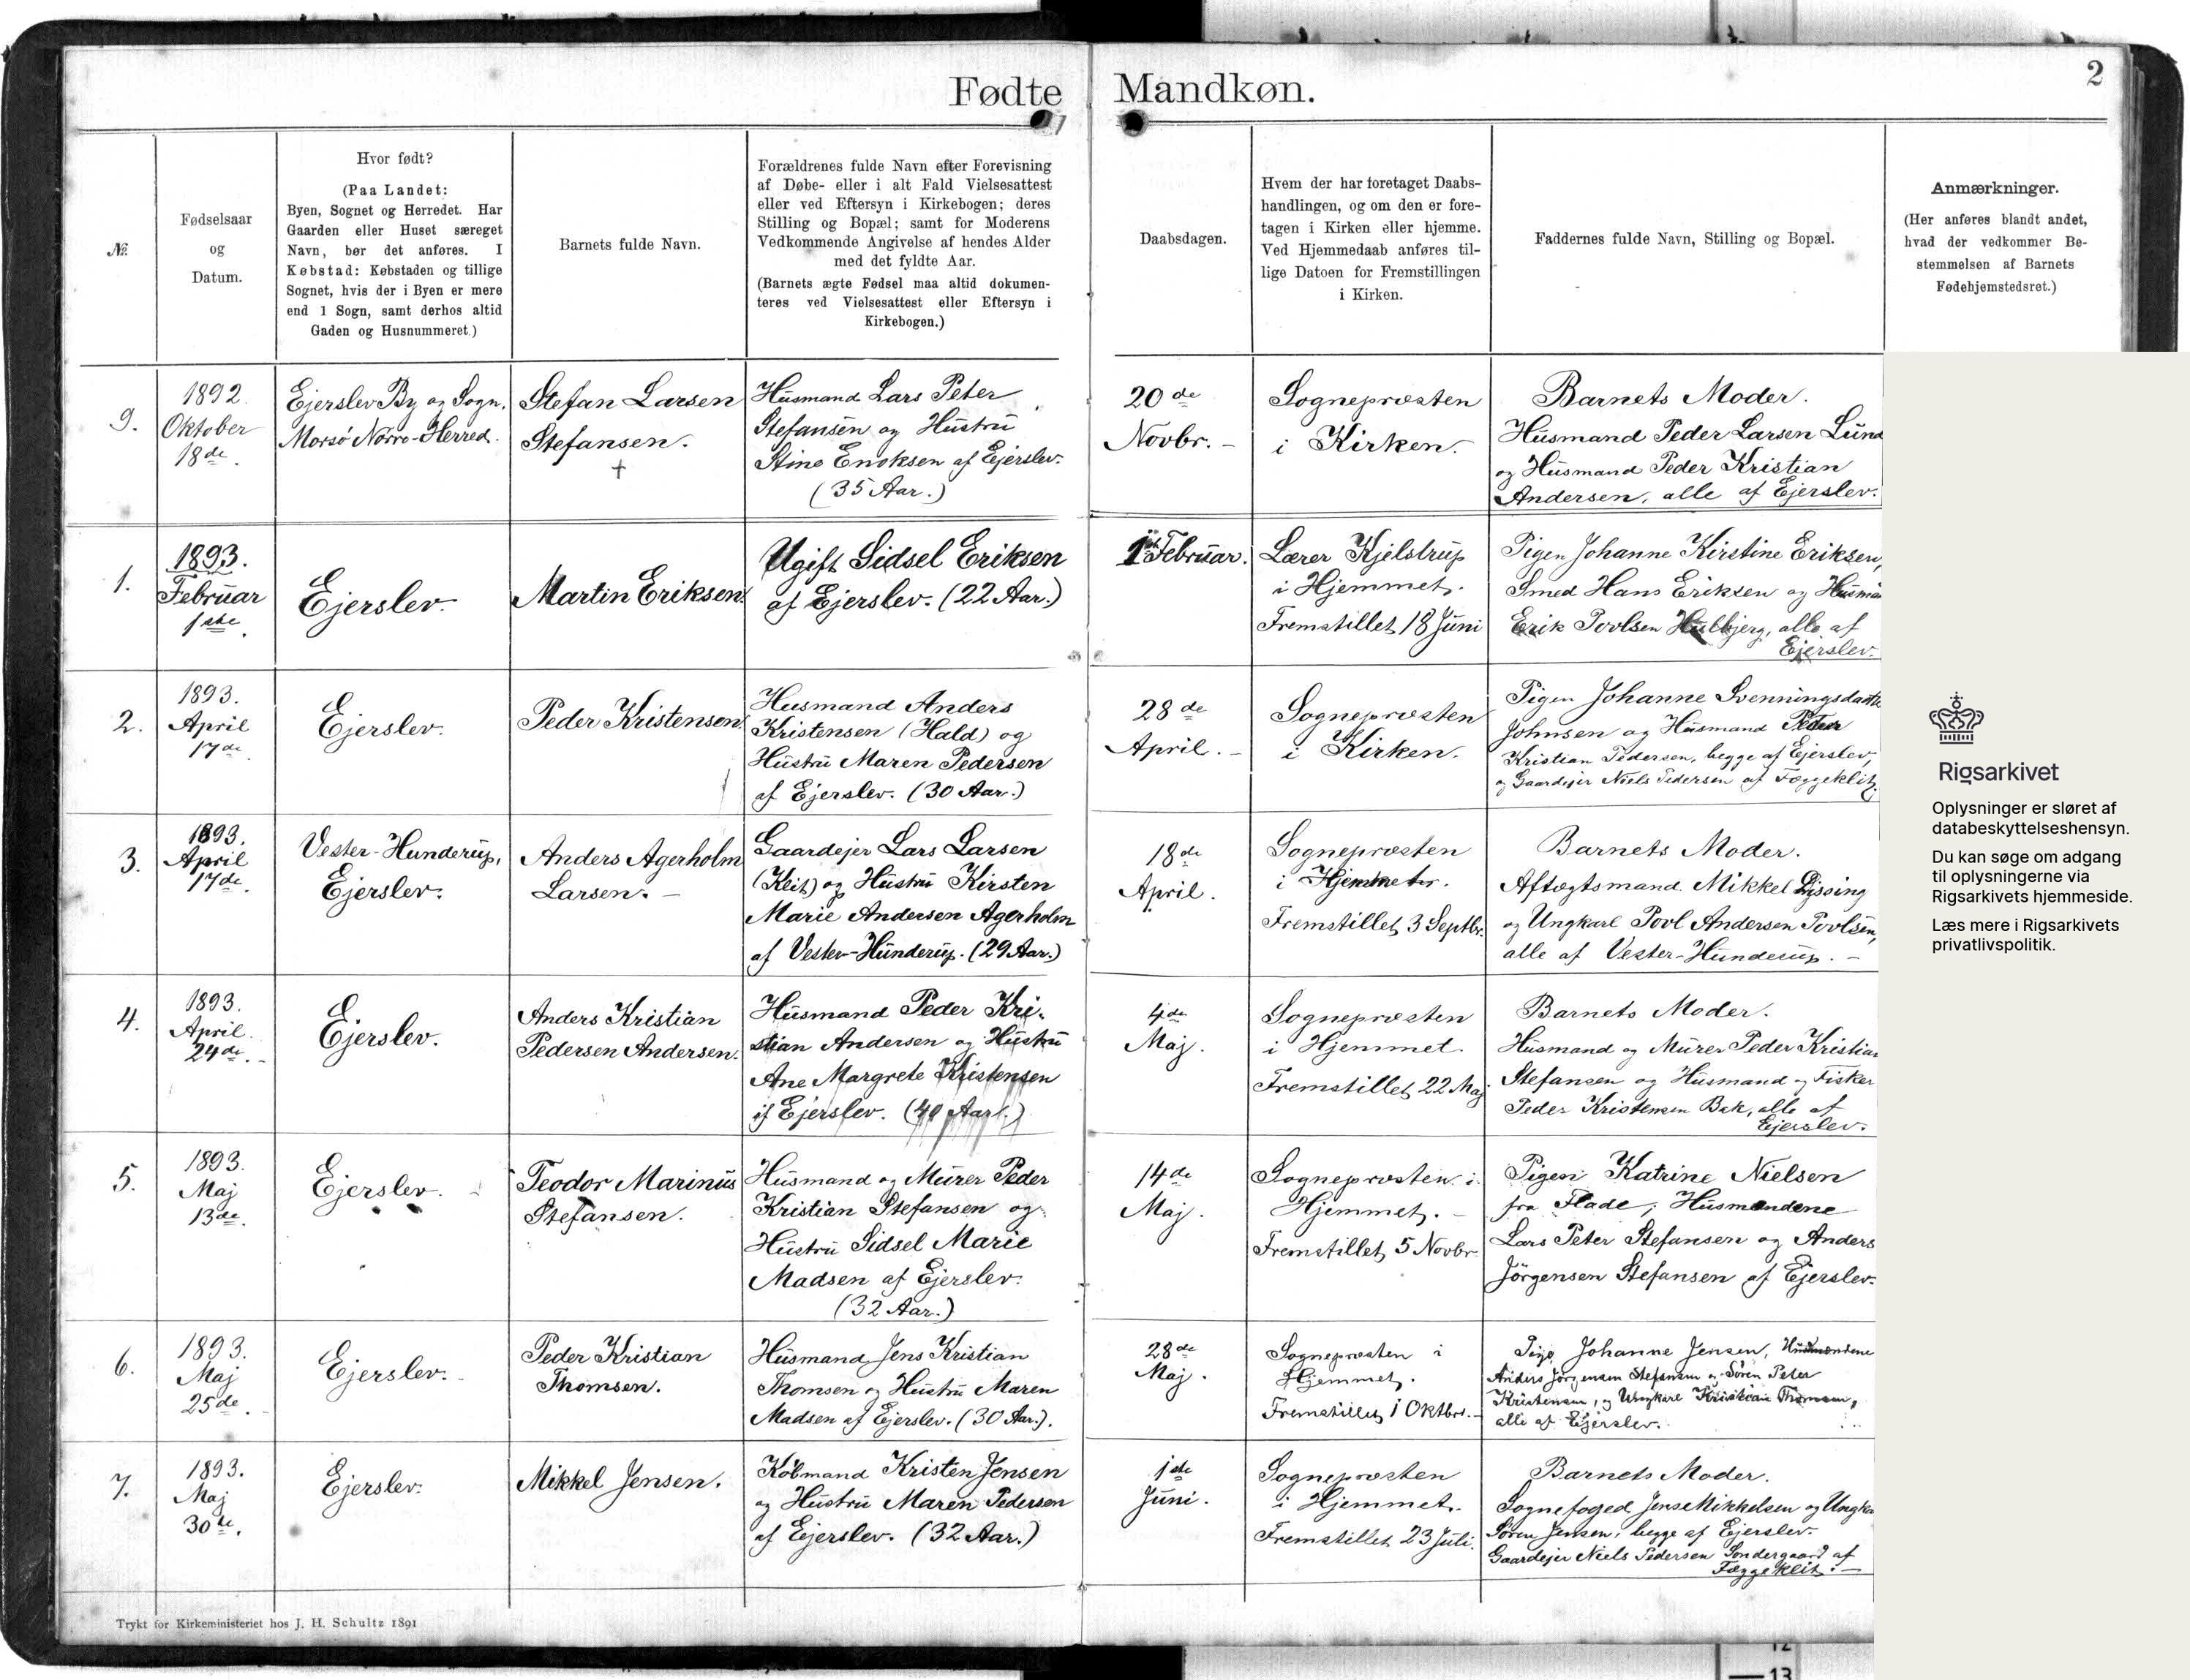 Fødte Mandkøn.
2
№.
Fødselsaar
og
Datum.
Hvor født?
(Paa Landet:
Byen, Sognet og Herredet. Har
Gaarden eller Huset særeget
Navn, bør det anføres. I
Købstad: Købstaden og tillige
Sognet, hvis der i Byen er mere
end 1 Sogn, samt derhos altid
Gaden og Husnummeret.)
Barnets fulde Navn.
Forældrenes fulde Navn efter Forevisning
af Døbe- eller i alt Fald Vielsesattest
eller ved Eftersyn i Kirkebogen; deres
Stilling og Bopæl; samt for Moderens
Vedkommende Angivelse af hendes Alder
med det fyldte Aar.
(Barnets ægte Fødsel maa altid dokumen-
teres ved Vielsesattest eller Eftersyn i
Kirkebogen.)
Daabsdagen.
Hvem der har foretaget Daabs-
handlingen, og om den er fore-
tagen i Kirken eller hjemme.
Ved Hjemmedaab anføres til-
lige Datoen for Fremstillingen
i Kirken.
Faddernes fulde Navn, Stilling og Bopæl.
Anmærkninger.
(Her anføres blandt andet,
hvad der vedkommer Be-
stemmelsen af Barnets
Fødehjemstedsret.)
9.
1892.
Oktober
18de.
Ejerslev By og Sogn,
Morsö Nörre-Herred.
Stefan Larsen
Stefansen.
†
Husmand Lars Peter
Stefansen og Hustru
Stine Enoksen af Ejerslev.
(35 Aar.)
20de
Novbr. -
Sognepræsten
i Kirken.
Barnets Moder.
Husmand Peder Larsen Lund
og Husmand Peder Kristian
Andersen, alle af Ejerslev.
1.
1893.
Februar
1ste.
Ejerslev.
Martin Eriksen.
Ugift Sidsel Eriksen
af Ejerslev. (22 Aar.)
1ste Februar.
Lærer Kjelstrup
i Hjemmet.
Fremstillet 18 Juni
Pigen Johanne Kirstine Eriksen,
Smed Hans Eriksen og
Erik Povlsen Hulbjerg, alle af
Ejerslev.
2.
1893.
April
17de.
Ejerslev.
Peder Kristensen.
Husmand Anders
Kristensen (Hald) og
Hustru Maren Pedersen
af Ejerslev. (30 Aar.)
28de
April. -
Sognepræsten
i Kirken.
Pigen Johanne
Johnsen og Husmand Peder
Kristian Pedersen, begge af Ejerslev,
og Gaardejer Niels Pedersen af Fæggeklit.
3.
1893.
April
17de.
Vester-Hunderup,
Ejerslev.
Anders Agerholm
Larsen. -
Gaardejer Lars Larsen
(Kleit) og Hustru Kirsten
Marie Andersen Agerholm
af Vester-Hunderup. (29 Aar.)
18de
April.
Sognepræsten
i Hjemmet.
Fremstillet 3 Septbr.
Barnets Moder.
Aftægtsmand Mikkel
og Ungkarl Povl Andersen Povlsen,
alle af Vester-Hunderup. -
4.
1893.
April
24de. -
Ejerslev.
Anders Kristian
Pedersen Andersen.
Husmand Peder Kri-
stian Andersen og Hustru
Ane Margrete Kristensen
af Ejerslev. (40 Aar.)
4de
Maj.
Sognepræsten
i Hjemmet.
Fremstillet 22 Maj.
Barnets Moder.
Husmand og Murer Peder Kristian
Stefansen og Husmand og Fisker
Peder Kristensen Bak, alle af
Ejerslev.
5.
1893.
Maj
13de.
Ejerslev.
Teodor Marinus
Stefansen.
Husmand og Murer Peder
Kristian Stefansen og
Hustru Sidsel Marie
Madsen af Ejerslev.
(32 Aar.)
14de
Maj.
Sognepræsten i
Hjemmet. -
Fremstillet 5 Novbr.
Pigen Katrine Nielsen
fra Flade, Husmændene
Lars Peter Stefansen og Anders
Jörgensen Stefansen af Ejerslev.
6.
1893.
Maj
25de. -
Ejerslev.
Peder Kristian
Thomsen.
Husmand Jens Kristian
Thomsen og Hustru Maren
Madsen af Ejerslev. (30 Aar.).
28de
Maj.
Sognepræsten i
Hjemmet.
Fremstillet 1 Oktbr. -
Pige Johanne Jensen, Husmændene
Anders Jörgensen Stefansen og Sören Peter
Kristensen, og Ungkarl Kristian Thomsen,
alle af Ejerslev.
7.
1893.
Maj
30te.
Ejerslev.
Mikkel Jensen.
Köbmand Kristen Jensen
og Hustru Maren Pedersen
af Ejerslev. (32 Aar.)
1ste
Juni.
Sognepræsten
i Hjemmet.
Fremstillet 23 Juli.
Barnets Moder.
Sognefoged Jens Mikkelsen og
Sören Jensen, begge af Ejerslev.
Gaardejer Niels Pedersen Söndergaard af
Fæggeklit. -
Trykt for Kirkeministeriet hos J. H. Schultz 1891
Rigsarkivet
Oplysninger er sløret af
databeskyttelseshensyn.
Du kan søge om adgang
til oplysningerne via
Rigsarkivets hjemmeside.
Læs mere i Rigsarkivets
privatlivspolitik.
12
13